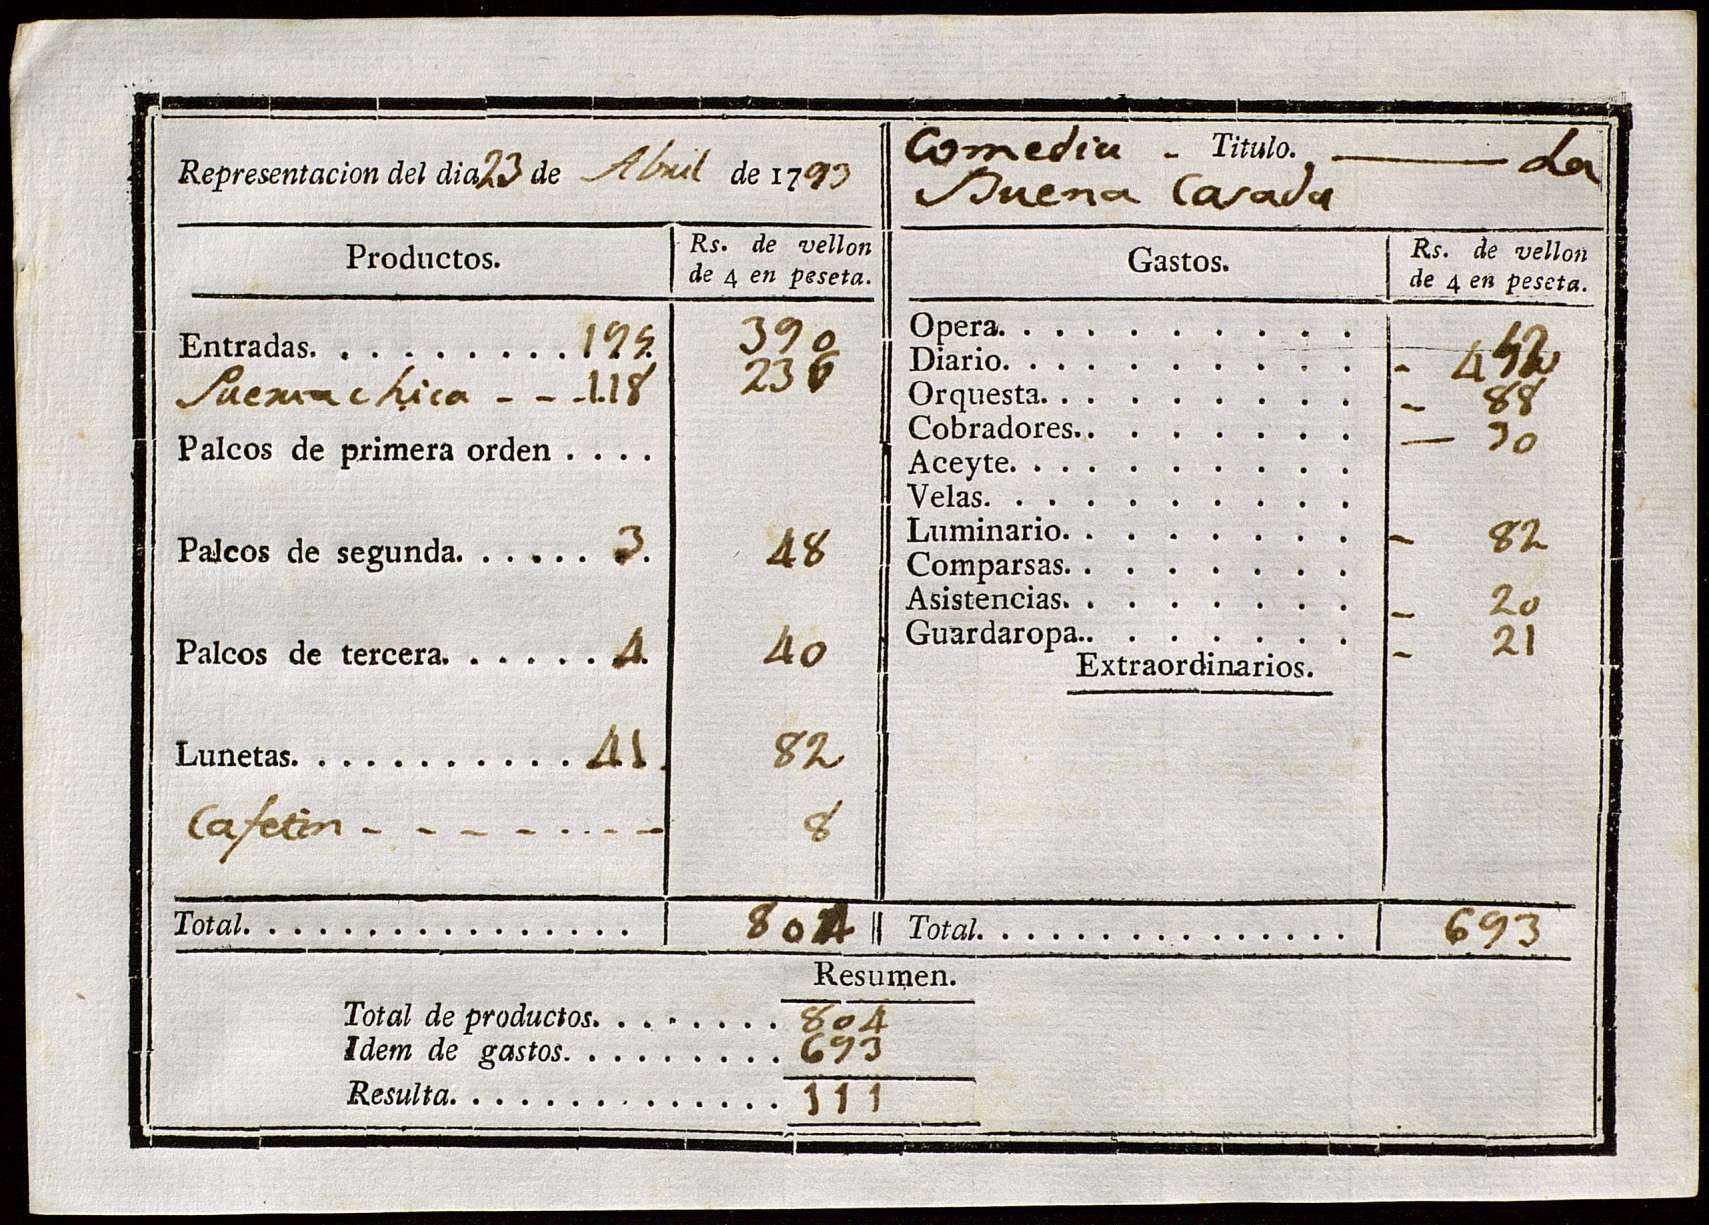 Representacion del dia 23 de Abril de 1793
Comedia - Titulo. — La
Buena Casada
Productos. Rs. de vellon
de 4 en peseta.
Entradas. . . . . . . . . . 195. 390
Puerta chica - - - 118 236
Palcos de primera orden . . . .
Palcos de segunda. . . . . . 3. 48
Palcos de tercera. . . . . . . 4. 40
Lunetas. . . . . . . . . . . . 41. 82
Cafetin - - - - - - - - 8
Total. . . . . . . . . . . . . . . . . 804
Gastos. Rs. de vellon
de 4 en peseta.
Opera. . . . . . . . . .
Diario. . . . . . . . . . -
Orquesta. . . . . . . . . - 88
Cobradores. . . . . . . . — 30
Aceyte. . . . . . . . . .
Velas. . . . . . . . . .
Luminario. . . . . . . . - 82
Comparsas. . . . . . . .
Asistencias. . . . . . . . - 20
Guardaropa. . . . . . . . - 21
Extraordinarios.
Total. . . . . . . . . . . . . . . . 693
Resumen.
Total de productos. . . . . . . . 804
Idem de gastos. . . . . . . . . 693
Resulta. . . . . . . . . . . . . . 111